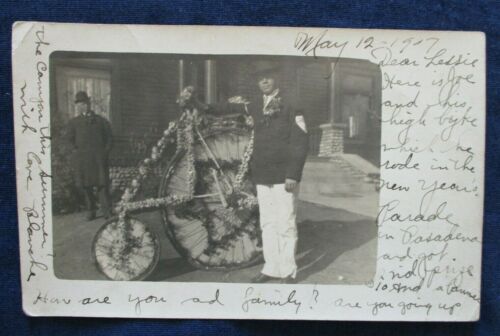 May 12-1907
Dear Lessie
Here is Joe
and his
high byke
which he
rode in the
New Years
Parade
in Pasadena
and got
2nd prize
$10 and a banner
How are you ad family? are you going up
the canyon this summer?
with love Blanche